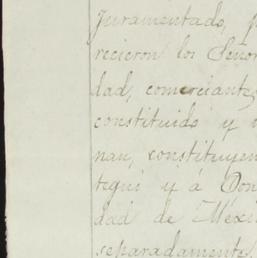 Juramentado, p
recieron los Señor
dad, comerciantes
constituido y
nan, constituyen
tegui y á Don
dad de Méxi
separadamente